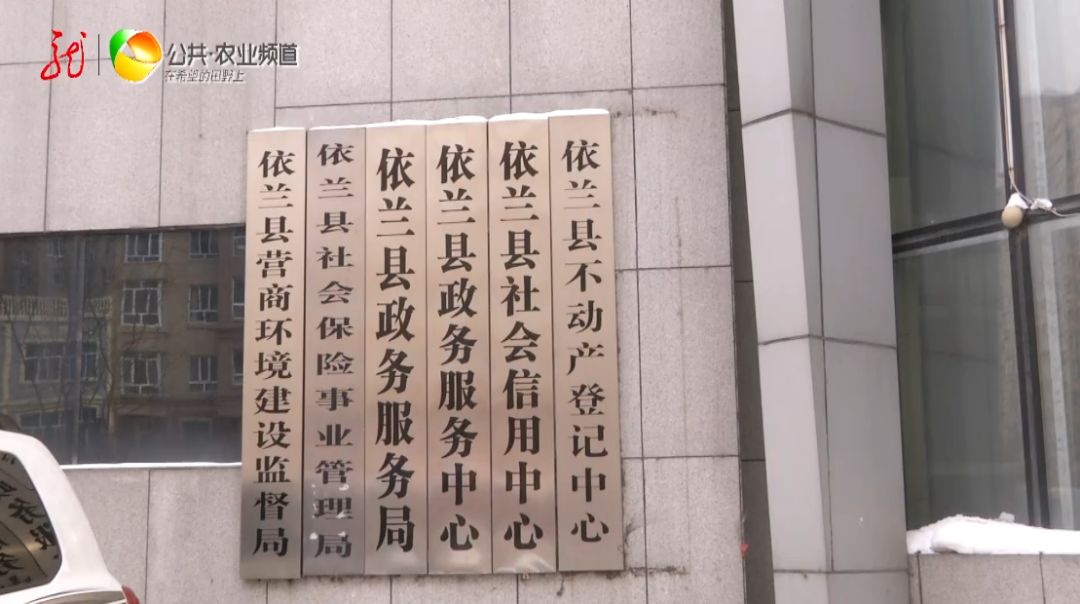 龙
公共·农业频道
在希望的田野上
依兰县营商环境建设监督局
依兰县社会保险事业管理局
依兰县政务服务局
依兰县政务服务中心
依兰县社会信用中心
依兰县不动产登记中心